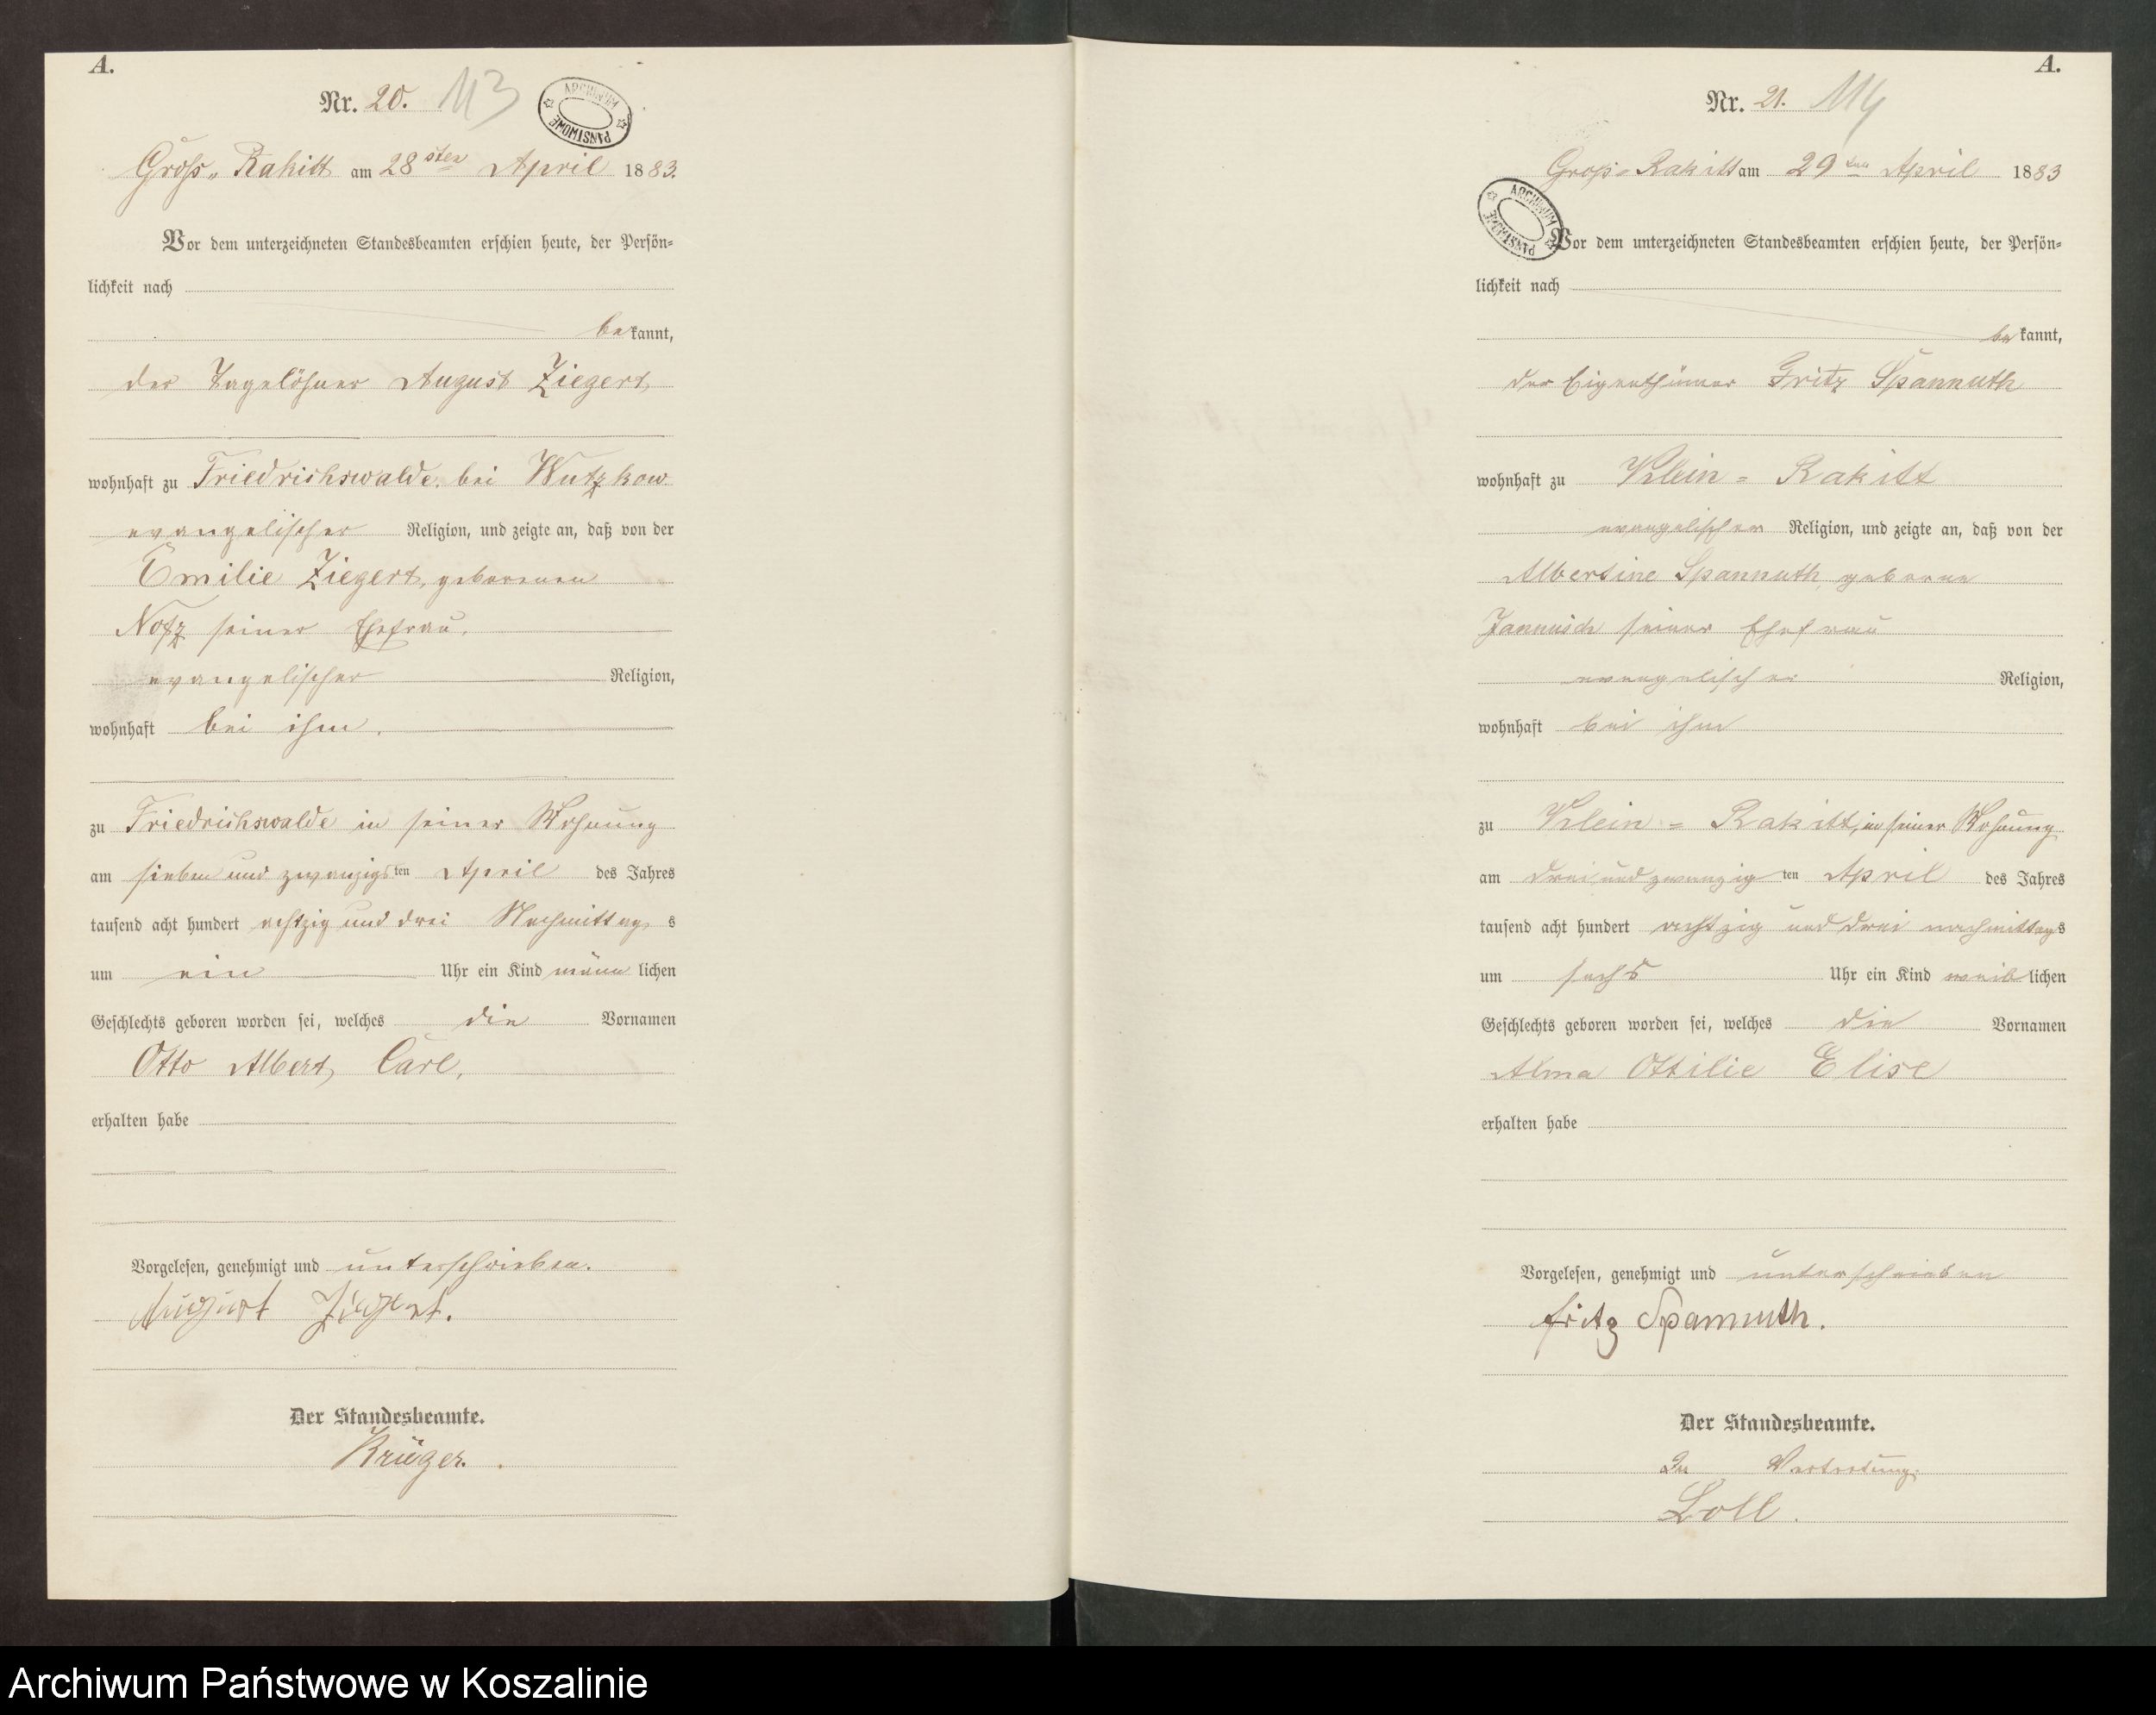 A.
Nr. 20. 113
ARCHIWUM PAŃSTWOWE
Groß-Rakitt am 28sten April 1883.
Vor dem unterzeichneten Standesbeamten erschien heute, der Persön-
lichkeit nach
bekannt,
der Tagelöhner August Ziegert,
wohnhaft zu Friedrichswalde bei Wutzkow
evangelischer Religion, und zeigte an, daß von der
Emilie Ziegert, geborenen
Notz seiner Ehefrau,
evangelischer Religion,
wohnhaft bei ihm,
zu Friedrichswalde in seiner Wohnung
am sieben und zwanzigsten April des Jahres
tausend acht hundert achtzig und drei Nachmittags
um ein Uhr ein Kind männlichen
Geschlechts geboren worden sei, welches die Vornamen
Otto Albert Carl,
erhalten habe
Vorgelesen, genehmigt und unterschrieben.
August Ziegert.
Der Standesbeamte.
Krüger.
A.
Nr. 21. 114
Groß-Rakitt am 29ten April 1883
ARCHIWUM PAŃSTWOWE
Vor dem unterzeichneten Standesbeamten erschien heute, der Persön-
lichkeit nach
bekannt,
der Eigenthümer Fritz Spannuth
wohnhaft zu Klein-Rakitt
evangelischer Religion, und zeigte an, daß von der
Albertine Spannuth geborne
Jannusch seiner Ehefrau
evangelischer Religion,
wohnhaft bei ihm
zu Klein-Rakitt, in seiner Wohnung
am drei und zwanzigten April des Jahres
tausend acht hundert achtzig und drei nachmittags
um sechs Uhr ein Kind weiblichen
Geschlechts geboren worden sei, welches die Vornamen
Alma Ottilie Elise
erhalten habe
Vorgelesen, genehmigt und unterschrieben
Fritz Spannuth.
Der Standesbeamte.
In Vertretung.
Loll.
Archiwum Państwowe w Koszalinie